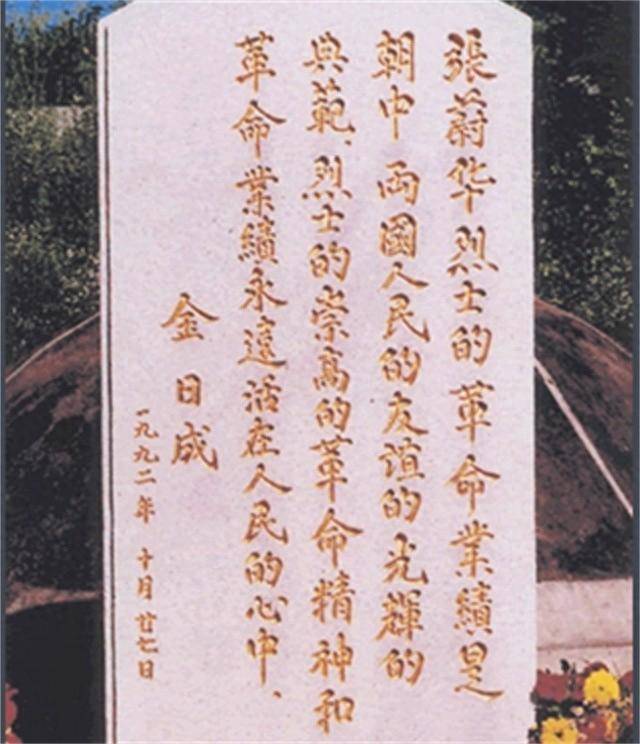 張蔚华烈士的革命業績是
朝中両國人民的友誼的光輝的
典範、烈士的崇高的革命精神和
革命業績永遠活在人民的心中、
金日成
一九九二年 十月廿七日